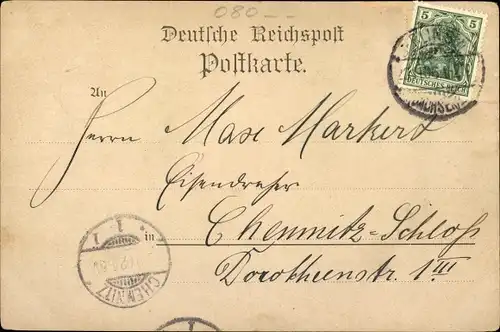 080
Deutsche Reichspost
Postkarte.
5
DEUTSCHES REICH
An
Herrn Max Markert
Eisendreher
in Chemnitz-Schloß
Dorotheenstr. 1III
1 1
CHEMNITZ